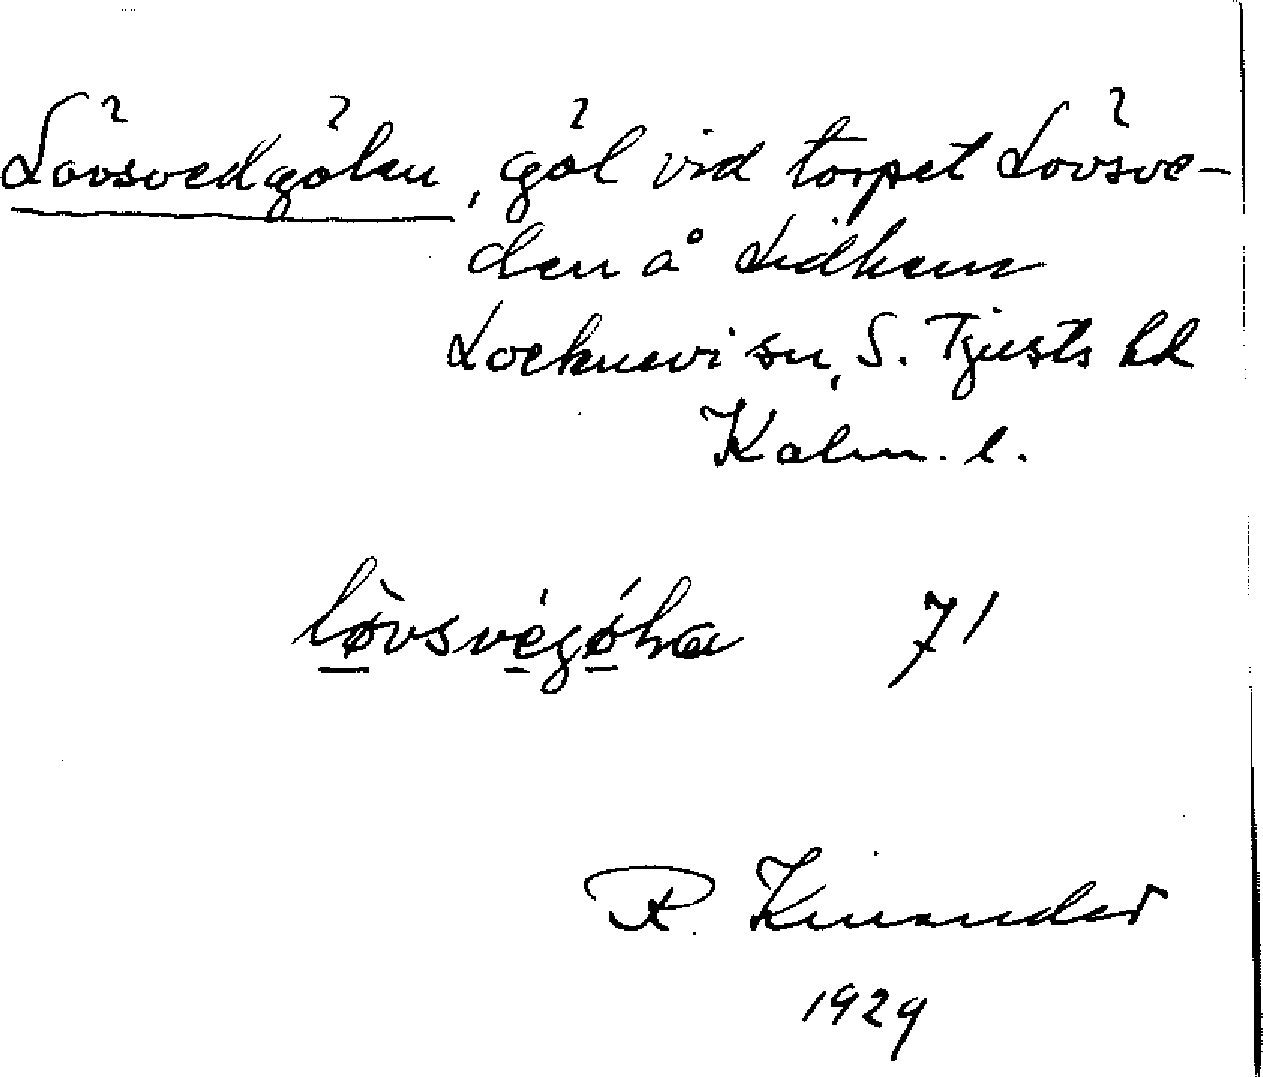 Lövsvedgölen, göl vid torpet Lövsve-
den å Lidhem
Locknevi sn, S. Tjusts hd
Kalm. l.
lø̀vsvégǿlna 71
R. Kinander
1929